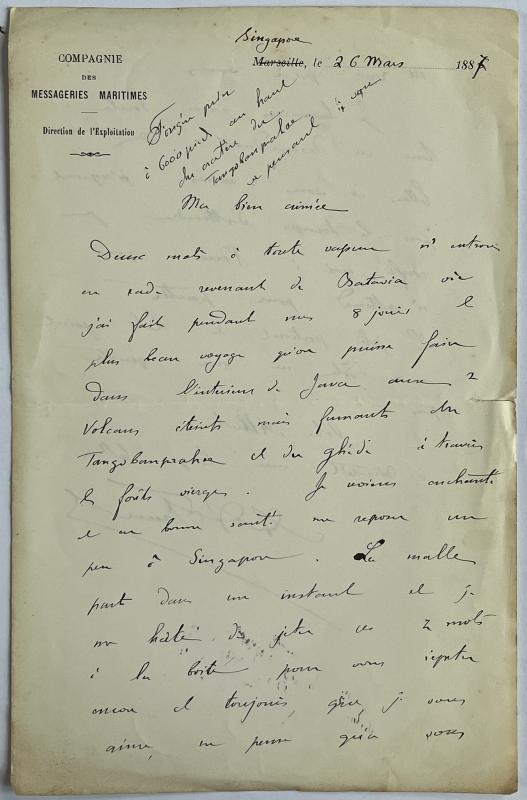 COMPAGNIE
DES
MESSAGERIES MARITIMES
Direction de l'Exploitation
Singapore
Marseille, le 26 Mars 1887
à 6000 pieds au haut
du cratère du
Tangobanprahoe
en pensant à vous
Ma bien aimée
Deux mots à toute vapeur
en rade revenant de Batavia
j'ai fait pendant mes 8 jours le
plus beau voyage qu'on puisse faire
dans l'intérieur de Java aux 2
Volcans éteints mais fumants du
Tangobanprahoe et du ghédé à travers
les forêts vierges. Je reviens enchanté
et en bonne santé! me reposer un
peu à Singapore. La malle
part dans un instant et je
me hâte de jeter ces 2 mots
à la boite pour vous répéter
encore et toujours que je vous
aime, ne pense qu'à vous